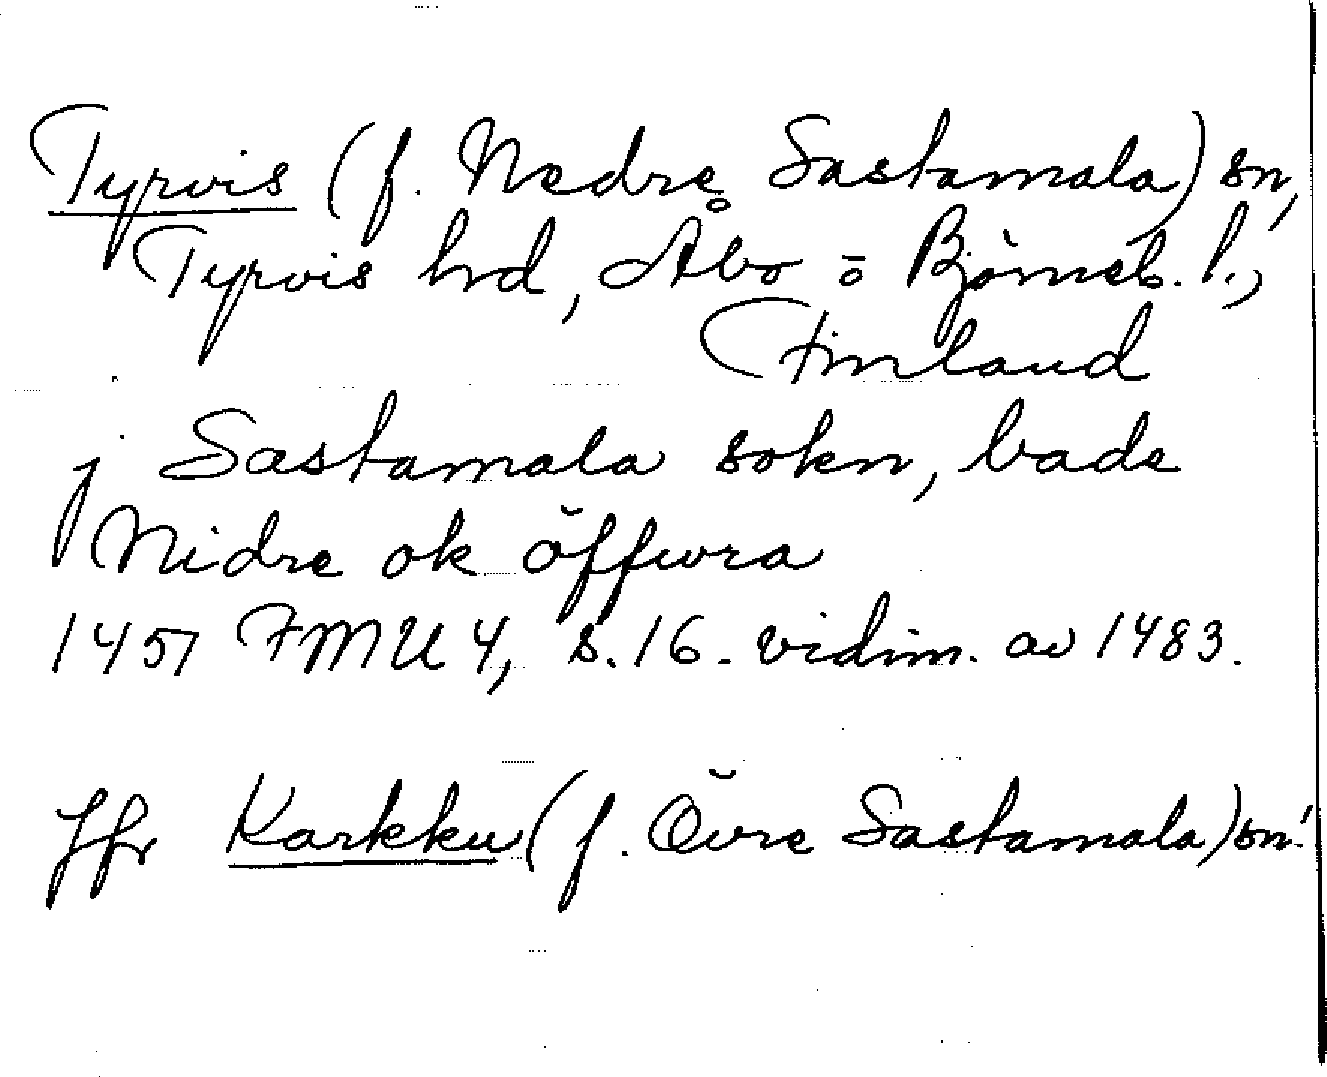 Tyrvis (f. Nedre Sastamala) sn,
Tyrvis hd, Åbo o Björneb. l.,
Finland
j Sastamala sokn, bade
Nidre ok öffwra
1457 FMU 4, s. 16. vidim. av 1483.
Jfr Karkku (f. Övre Sastamala) sn!